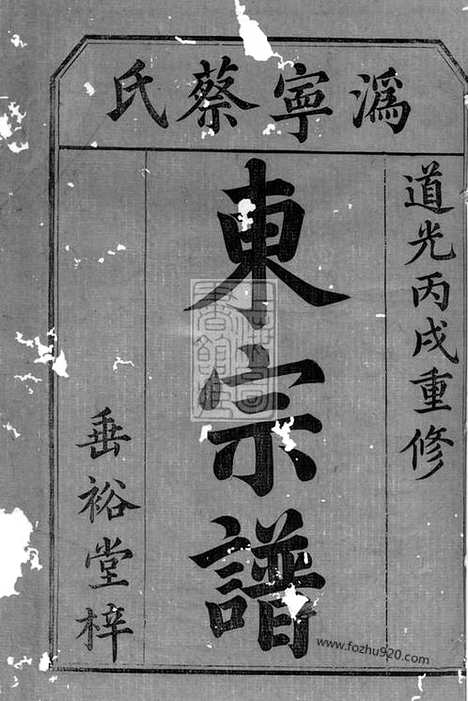 溈寧蔡氏
道光丙戌重修
東宗譜
垂裕堂梓
www.fozhu920.com